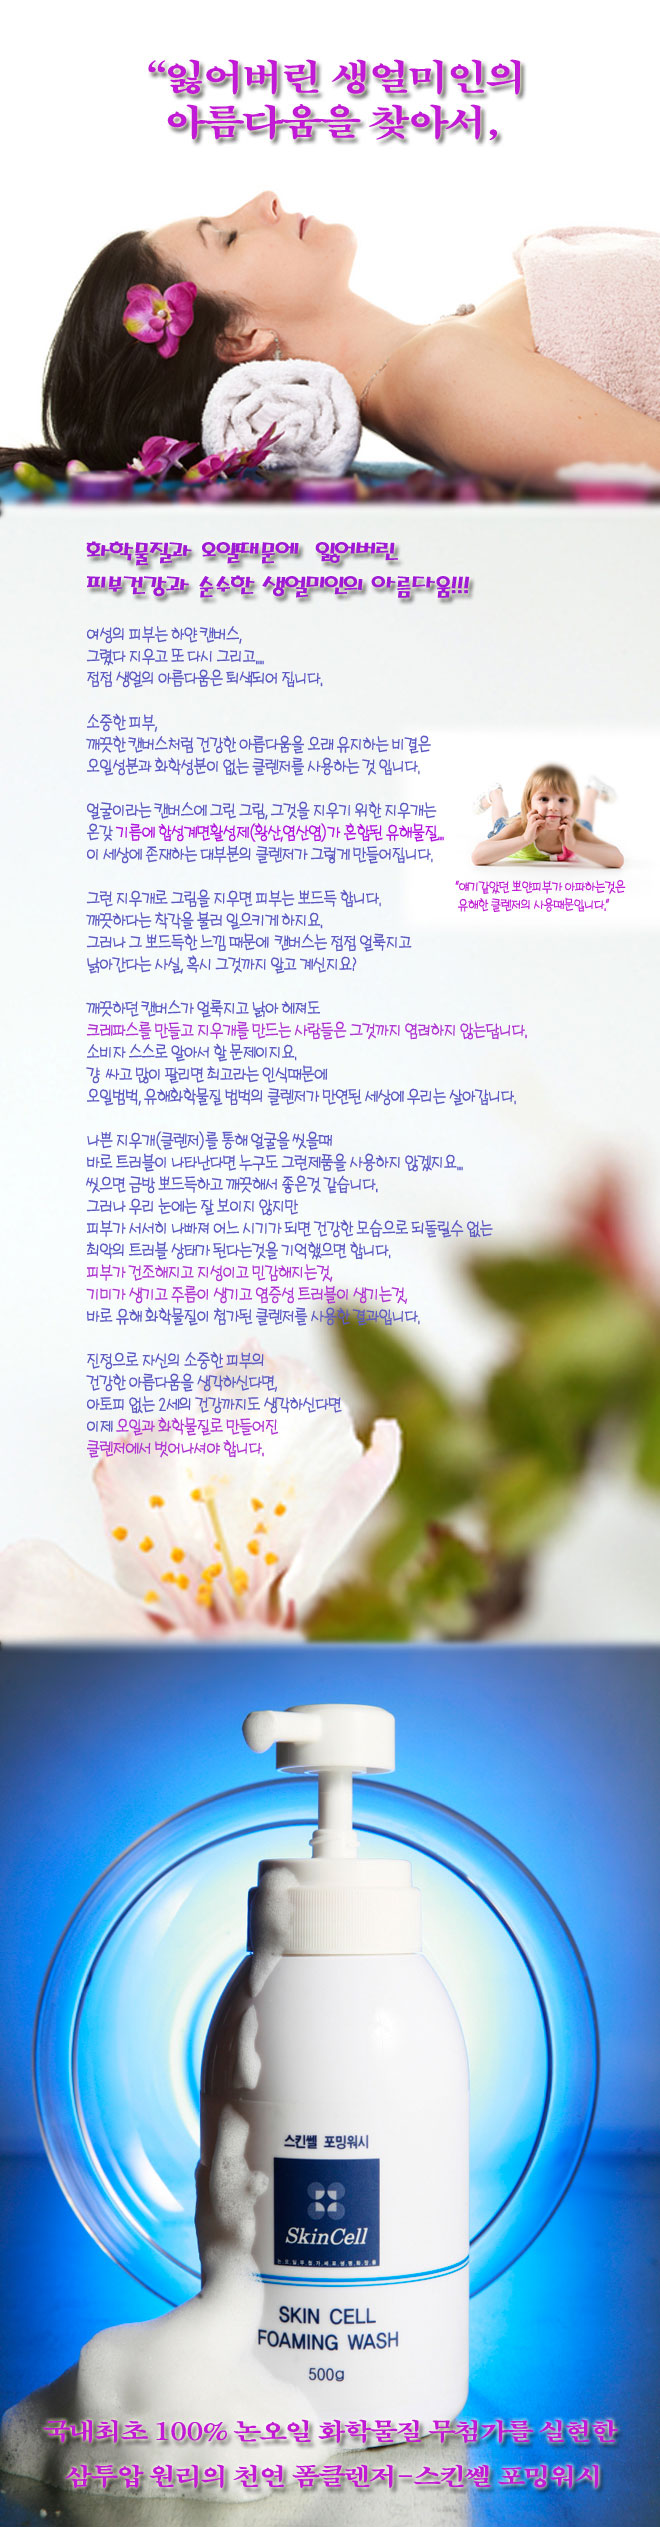 “잃어버린 생얼미인의
아름다움을 찾아서,
화학물질과 오일때문에 잃어버린
피부건강과 순수한 생얼미인의 아름다움!!!
여성의 피부는 하얀 캔버스,
그렸다 지우고 또 다시 그리고.....
점점 생얼의 아름다움은 퇴색되어 집니다.
소중한 피부,
깨끗한 캔버스처럼 건강한 아름다움을 오래 유지하는 비결은
오일성분과 화학성분이 없는 클렌저를 사용하는 것 입니다.
얼굴이라는 캔버스에 그린 그림, 그것을 지우기 위한 지우개는
온갖 기름에 합성계면활성제(황산,염산염)가 혼합된 유해물질....
이 세상에 존재하는 대부분의 클렌저가 그렇게 만들어집니다.
"애기같았던 뽀얀피부가 아파하는것은
유해한 클렌저의 사용때문입니다."
그런 지우개로 그림을 지우면 피부는 뽀드득 합니다.
깨끗하다는 착각을 불러 일으키게 하지요.
그러나 그 뽀드득한 느낌 때문에 캔버스는 점점 얼룩지고
낡아간다는 사실, 혹시 그것까지 알고 계신지요?
깨끗하던 캔버스가 얼룩지고 낡아 헤져도
크레파스를 만들고 지우개를 만드는 사람들은 그것까지 염려하지 않는답니다.
소비자 스스로 알아서 할 문제이지요.
걍 싸고 많이 팔리면 최고라는 인식때문에
오일범벅, 유해화학물질 범벅의 클렌저가 만연된 세상에 우리는 살아갑니다.
나쁜 지우개(클렌저)를 통해 얼굴을 씻을때
바로 트러블이 나타난다면 누구도 그런제품을 사용하지 않겠지요....
씻으면 금방 뽀드득하고 깨끗해서 좋은것 같습니다.
그러나 우리 눈에는 잘 보이지 않지만
피부가 서서히 나빠져 어느 시기가 되면 건강한 모습으로 되돌릴수 없는
최악의 트러블 상태가 된다는것을 기억했으면 합니다.
피부가 건조해지고 지성이고 민감해지는것,
기미가 생기고 주름이 생기고 염증성 트러블이 생기는것,
바로 유해 화학물질이 첨가된 클렌저를 사용한 결과입니다.
진정으로 자신의 소중한 피부의
건강한 아름다움을 생각하신다면,
아토피 없는 2세의 건강까지도 생각하신다면
이제 오일과 화학물질로 만들어진
클렌저에서 벗어나셔야 합니다.
스킨쎌 포밍워시
SkinCell
논오일무첨가세포생명화장품
SKIN CELL
FOAMING WASH
500g
국내최초 100% 논오일 화학물질 무첨가를 실현한
삼투압 원리의 천연 폼클렌저-스킨쎌 포밍워시